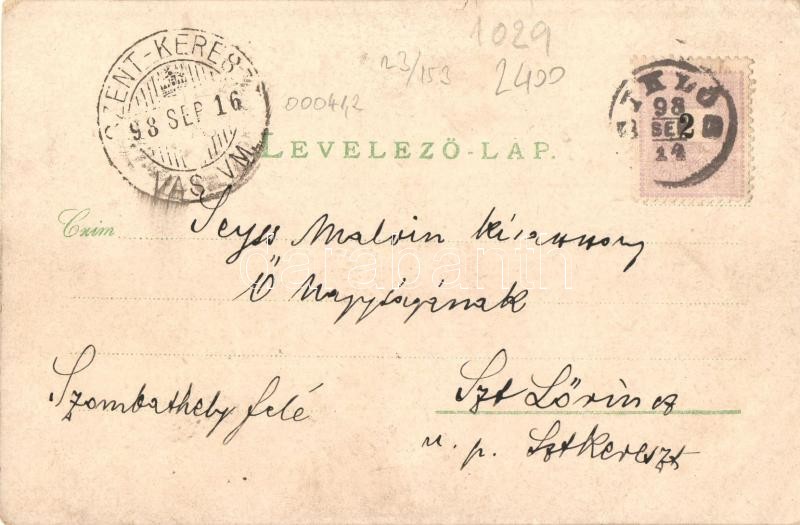 1029
23/153
2400
00041,2
SZENT-KERESZT
98 SEP 16
VAS VM.
SIKLÓS
98
SEP
14
2
LEVELEZŐ-LAP.
Czim
Seyss Malvin kisasszony
Ő Nagyságának
Szombathely felé
Szt Lőrincz
u. p. Sztkereszt
darabanth